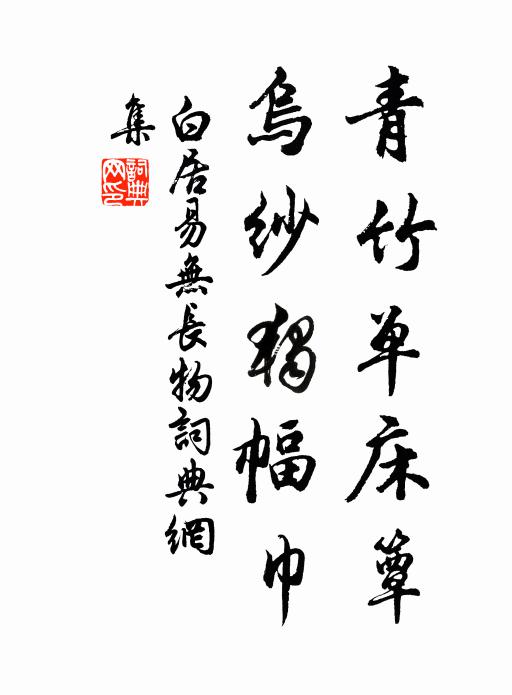 青竹单床簟
烏紗獨幅巾
白居易無長物詞典網
集
詞典
网印